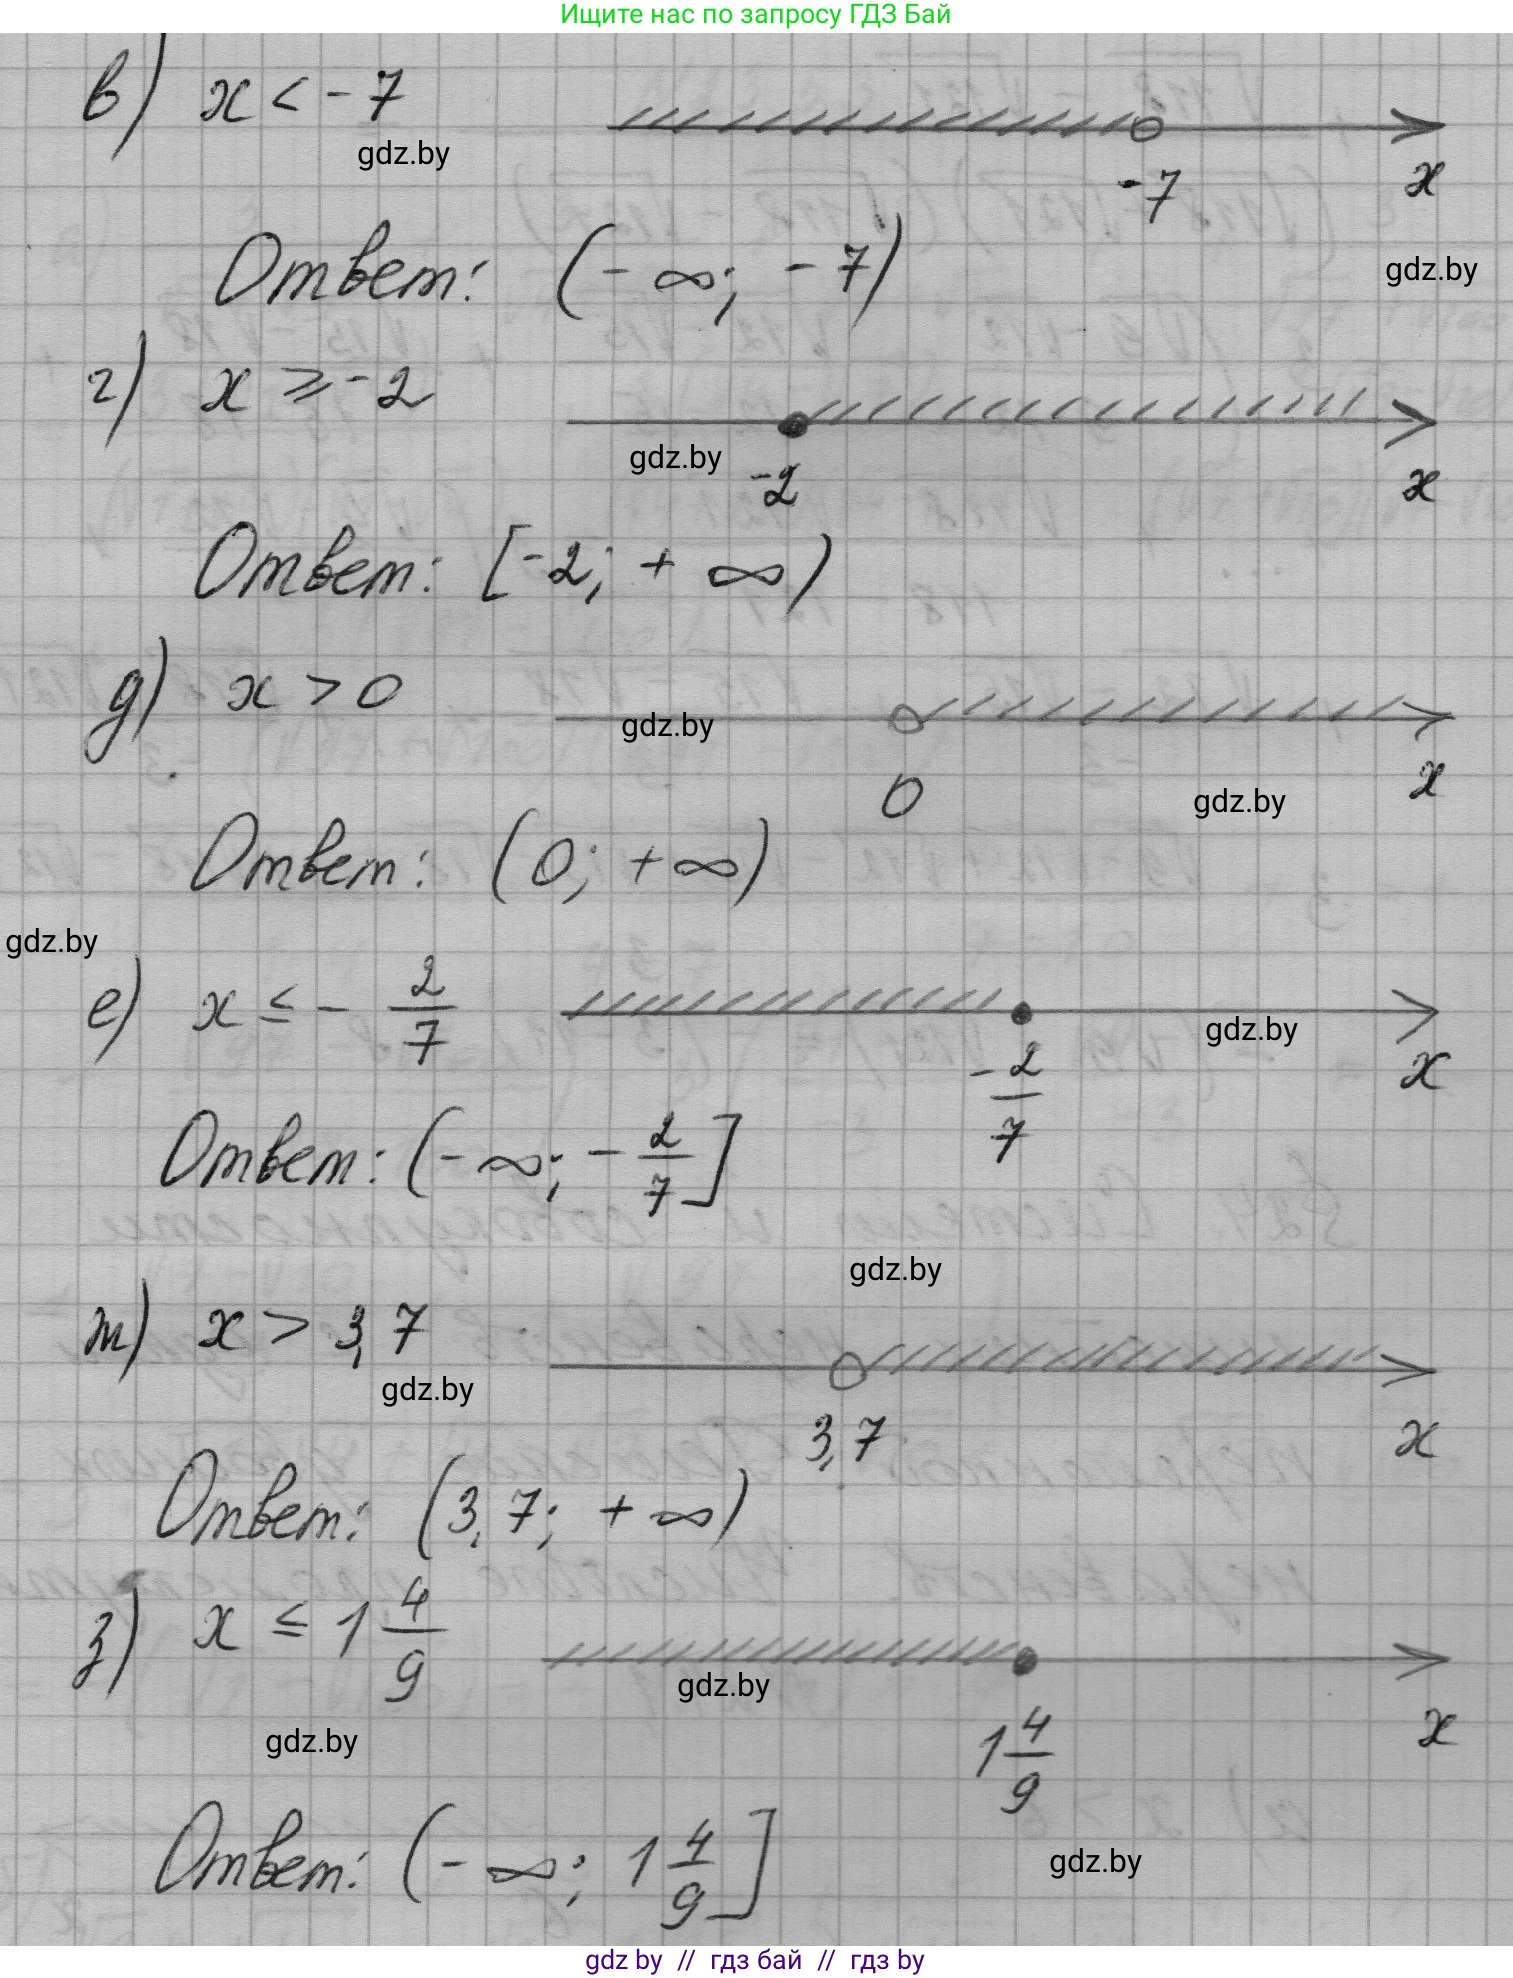 Ищите нас по запросу ГДЗ Бай
в) x < -7
gdz.by
-7
x
Ответ: (-∞; -7)
gdz.by
г) x ⩾ -2
gdz.by
-2
x
Ответ: [-2; +∞)
д) x > 0
gdz.by
0
x
gdz.by
Ответ: (0; +∞)
gdz.by
е) x ≤ - 2/7
gdz.by
-2/7
x
Ответ: (-∞; -2/7]
gdz.by
ж) x > 3,7
gdz.by
3,7
x
Ответ: (3,7; +∞)
з) x ≤ 1 4/9
gdz.by
gdz.by
1 4/9
x
Ответ: (-∞; 1 4/9]
gdz.by
gdz by // гдз бай // гдз by